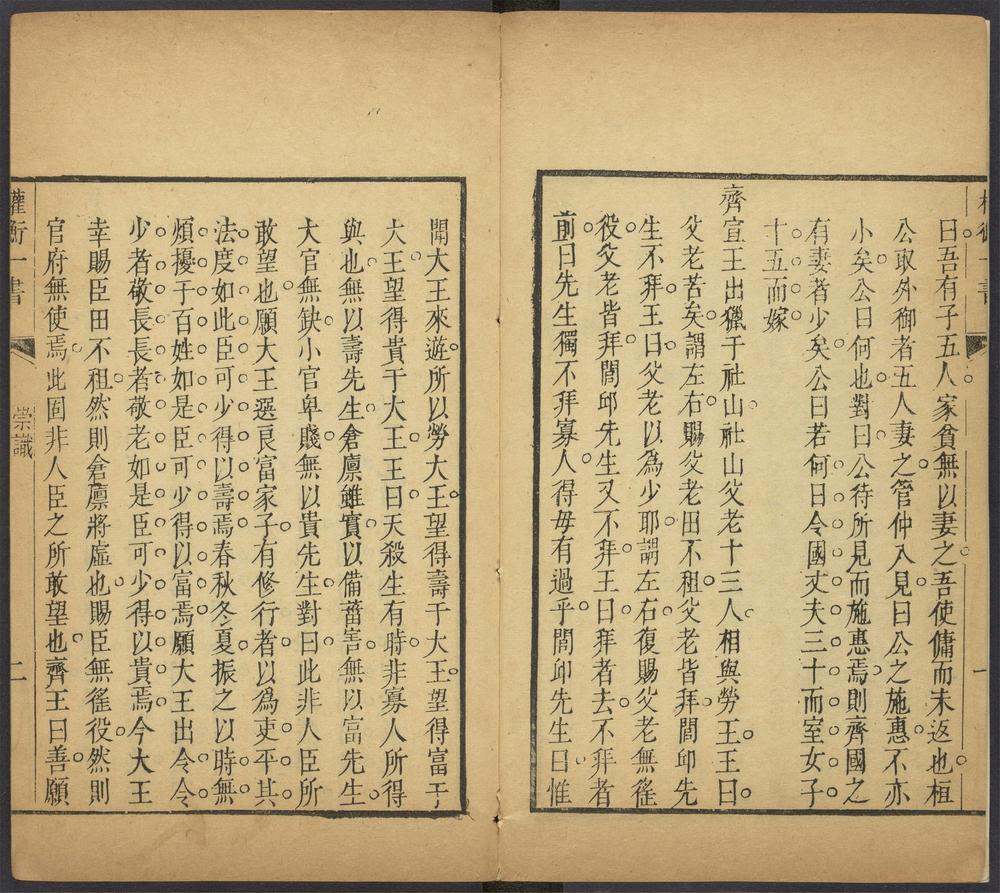 曰吾有子五人家貧無以妻之吾使傭而未返也桓
公取外御者五人妻之管仲入見曰公之施惠不亦
小矣公曰何也對曰公待所見而施惠焉則齊國之
有妻者少矣公曰若何曰令國丈夫三十而室女子
十五而嫁
齊宣王出獵于社山社山父老十三人相與勞王王曰
父老苦矣謂左右賜父老田不租父老皆拜閭邱先
生不拜王曰父老以為少耶謂左右復賜父老無徭
役父老皆拜閭邱先生又不拜王曰拜者去不拜者
前曰先生獨不拜寡人得毋有過乎閭邱先生曰惟
聞大王來遊所以勞大王望得壽于大王望得富于
大王望得貴于大王王曰天殺生有時非寡人所得
與也無以壽先生倉廩雖實以備蓄害無以富先生
大官無缺小官卑賤無以貴先生對曰此非人臣所
敢望也願大王選良富家子有修行者以為吏平其
法度如此臣可少得以壽焉春秋冬夏振之以時無
煩擾于百姓如是臣可少得以富焉願大王出令令
少者敬長長者敬老如是臣可少得以貴焉今大王
幸賜臣田不租然則倉廩將虛也賜臣無徭役然則
官府無使焉此固非人臣之所敢望也齊王曰善願
權衡一書
崇識
二